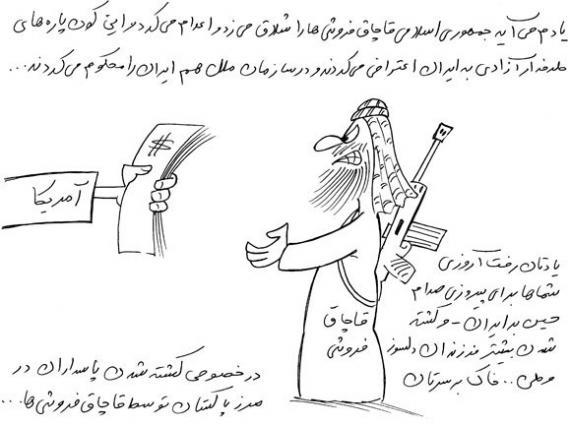 یادم می آید جمهوری اسلامی قاچاق فروشی ها را شلاق می زد و اعدام می کرد و این کون پاره های
طرفدار آزادی به ایران اعتراض می کردند و در سازمان ملل هم ایران را محکوم می کردند...
$
آمریکا
قاچاق
فروشی
یادتان رفت آرزوی
شماها برای پیروزی صدام
حسین بر ایران - و کشته
شدن بیشتر فرزندان دلسوز
وطن.. خاک بر سرتان
در خصوص کشته شدن پاسداران در
مرز پاکستان توسط قاچاق فروشی ها...